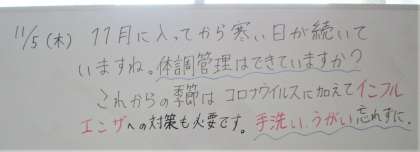 11/5(木) 11月に入ってから寒い日が続いて
いますね。体調管理はできていますか?
これからの季節はコロナウイルスに加えてインフル
エンザへの対策も必要です。手洗い、うがい忘れずに.